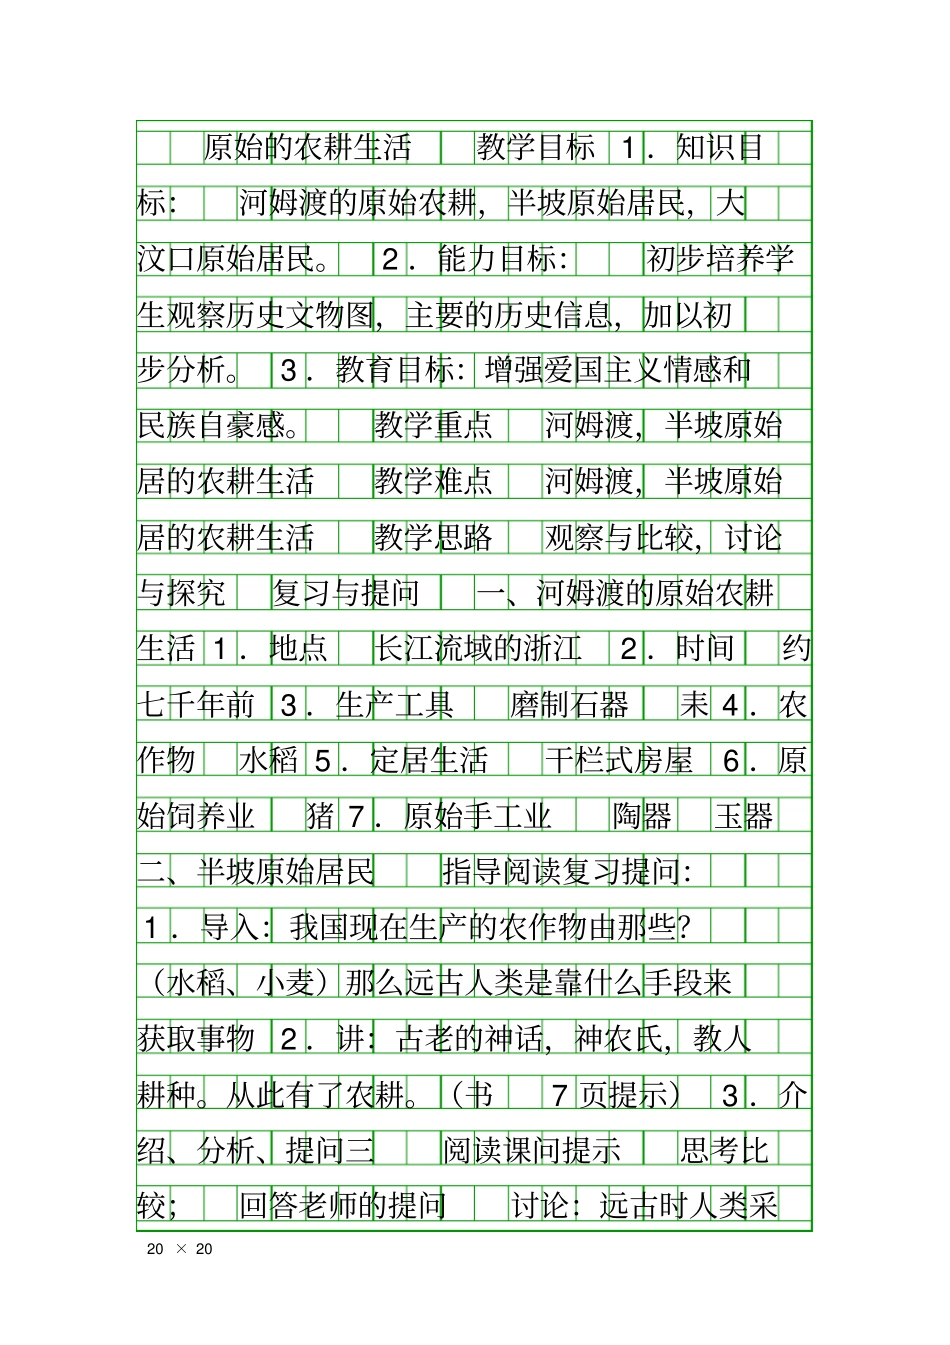 原始的农耕生活 教学目标 1．知识目
标： 河姆渡的原始农耕，半坡原始居民，大
汶口原始居民。 2．能力目标： 初步培养学
生观察历史文物图，主要的历史信息，加以初
步分析。 3．教育目标：增强爱国主义情感和
民族自豪感。 教学重点 河姆渡，半坡原始
居的农耕生活 教学难点 河姆渡，半坡原始
居的农耕生活 教学思路 观察与比较，讨论
与探究 复习与提问 一、河姆渡的原始农耕
生活 1．地点 长江流域的浙江 2．时间 约
七千年前 3．生产工具 磨制石器 耒 4．农
作物 水稻 5．定居生活 干栏式房屋 6．原
始饲养业 猪 7．原始手工业 陶器 玉器
二、半坡原始居民 指导阅读复习提问：
1．导入：我国现在生产的农作物由那些？
（水稻、小麦）那么远古人类是靠什么手段来
获取事物 2．讲：古老的神话，神农氏，教人
耕种。从此有了农耕。（书 7页提示） 3．介
绍、分析、提问三 阅读课问提示 思考比
较； 回答老师的提问 讨论：远古时人类采
20 × 20